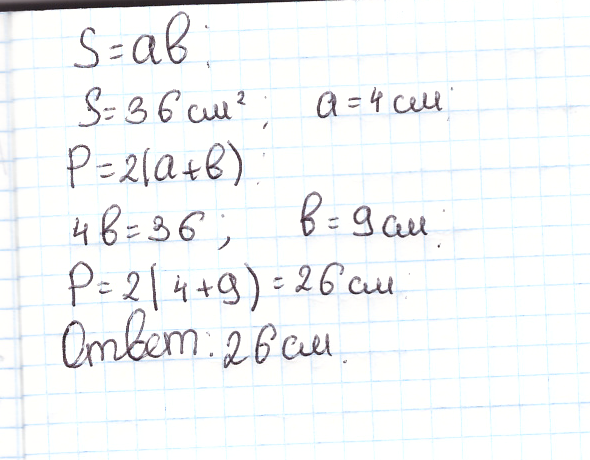 S=ab;
S=36см²; a=4см
P=2(a+b)
4b=36; b=9см.
P=2(4+9)=26см
Ответ: 26см.